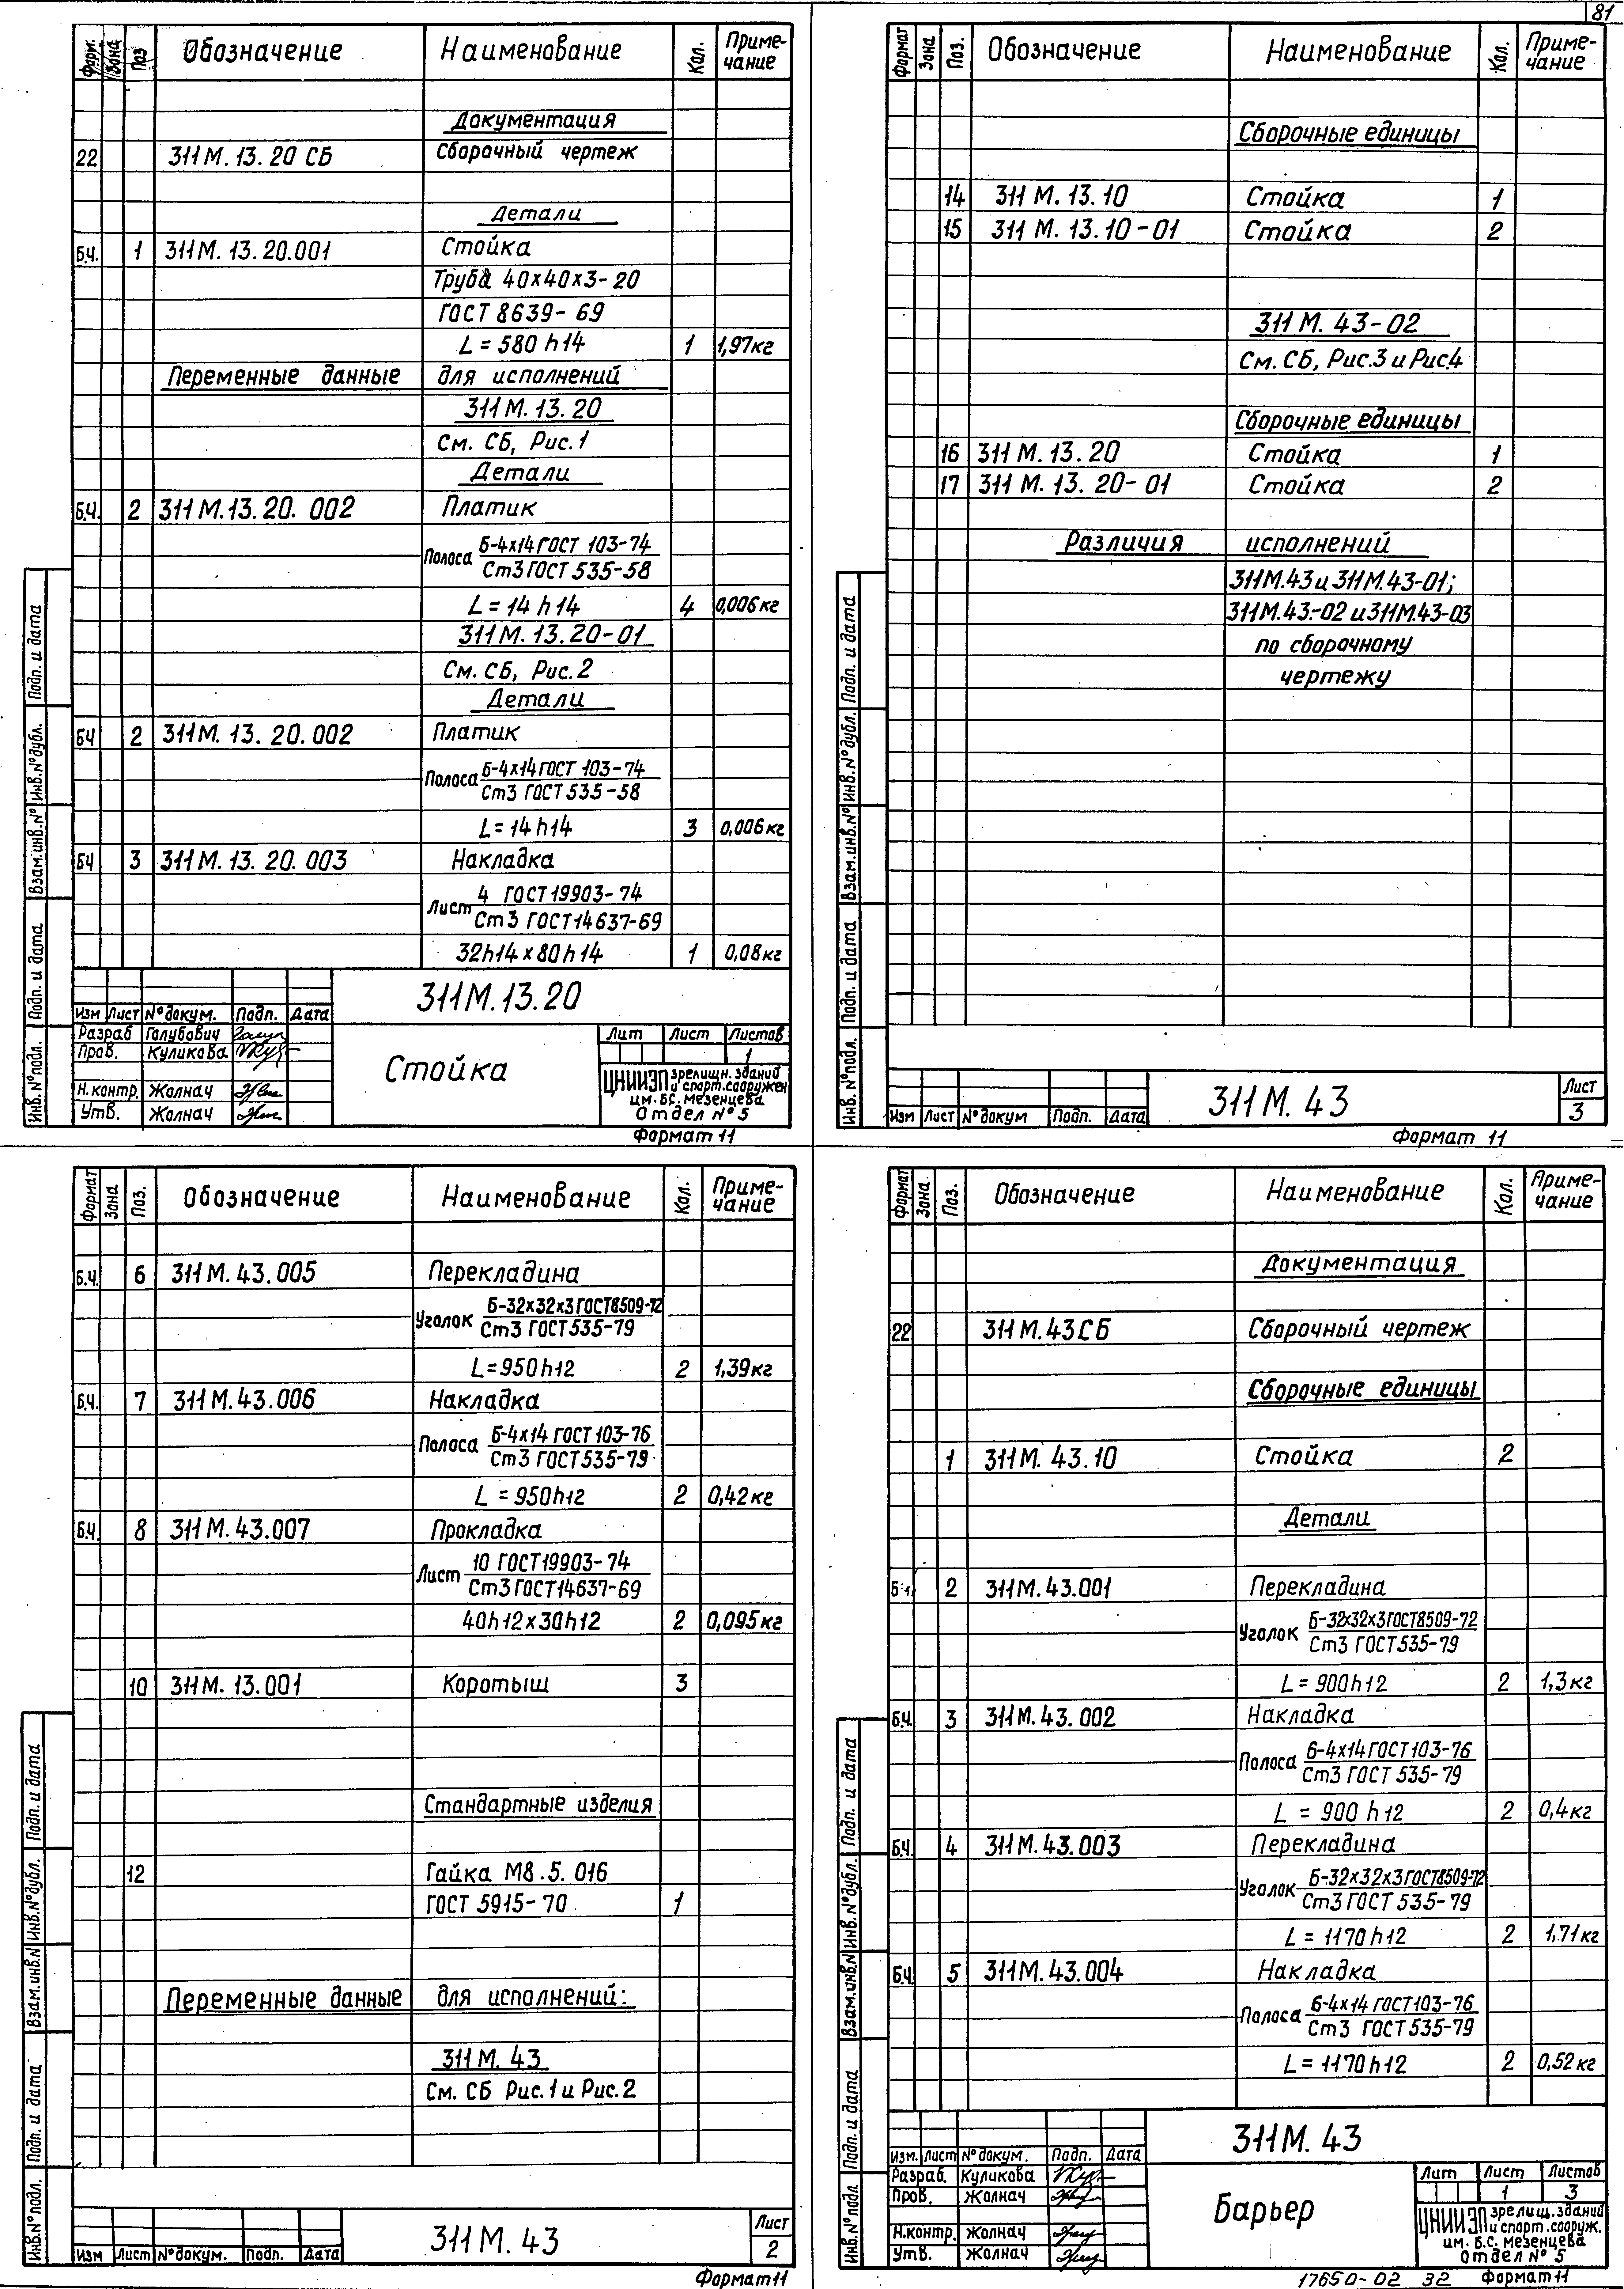 81
Форм. Зона Поз Обозначение Наименование Кол. Приме-
чание
Документация
22 311М.13.20 СБ Сборочный чертеж
Детали
Б.Ч. 1 311М.13.20.001 Стойка
Труба 40х40х3-20
ГОСТ 8639-69
L=580 h14 1 1,97кг
Переменные данные для исполнений
311М.13.20
См. СБ, Рис.1
Детали
Б.Ч. 2 311М.13.20.002 Платик
Полоса Б-4х14 ГОСТ 103-74
Ст3 ГОСТ 535-58
L=14 h14 4 0,006кг
311М.13.20-01
См. СБ, Рис.2
Детали
БЧ 2 311М.13.20.002 Платик
Полоса Б-4х14 ГОСТ 103-74
Ст3 ГОСТ 535-58
L=14h14 3 0,006кг
БЧ 3 311М.13.20.003 Накладка
Лист 4 ГОСТ 19903-74
Ст3 ГОСТ 14637-69
32h14х80h14 1 0,08кг
311М.13.20
Изм Лист №докум. Подп. Дата
Разраб Голубович
Пров. Куликова
Н.контр. Жолнач
Утв. Жолнач
Стойка
Лит Лист Листов
1
ЦНИИЭП зрелищн. зданий
и спорт. сооружен
им. БС. Мезенцева
Отдел №5
Формат 11
Инв.№подл. Подп. и дата Взам.инв.№ Инв.№дубл. Подп. и дата
Формат Зона Поз. Обозначение Наименование Кол. Приме-
чание
Сборочные единицы
14 311М.13.10 Стойка 1
15 311М.13.10-01 Стойка 2
311М.43-02
См. СБ, Рис.3 и Рис.4
Сборочные единицы
16 311М.13.20 Стойка 1
17 311М.13.20-01 Стойка 2
Различия исполнений
311М.43 и 311М.43-01;
311М.43-02 и 311М.43-03
по сборочному
чертежу
Изм Лист №докум Подп. Дата
311М.43
Лист
3
Формат 11
Инв.№подл. Подп. и дата Взам.инв.№ Инв.№дубл. Подп. и дата
Формат Зона Поз. Обозначение Наименование Кол. Приме-
чание
Б.Ч. 6 311М.43.005 Перекладина
Уголок Б-32х32х3 ГОСТ8509-72
Ст3 ГОСТ 535-79
L=950h12 2 1,39кг
Б.Ч. 7 311М.43.006 Накладка
Полоса Б-4х14 ГОСТ 103-76
Ст3 ГОСТ 535-79
L=950h12 2 0,42кг
Б.Ч. 8 311М.43.007 Прокладка
Лист 10 ГОСТ19903-74
Ст3 ГОСТ14637-69
40h12х30h12 2 0,095кг
10 311М.13.001 Коротыш 3
Стандартные изделия
12 Гайка М8.5.016
ГОСТ 5915-70 1
Переменные данные для исполнений:
311М.43
См. СБ Рис.1 и Рис.2
Изм Лист №докум. Подп. Дата
311М.43
Лист
2
Формат11
Инв.№подл. Подп. и дата Взам.инв.№ Инв.№дубл. Подп. и дата
Формат Зона. Поз. Обозначение Наименование Кол. Приме-
чание
Документация
22 311М.43СБ Сборочный чертеж
Сборочные единицы
1 311М.43.10 Стойка 2
Детали
2 311М.43.001 Перекладина
Уголок Б-32х32х3 ГОСТ8509-72
Ст3 ГОСТ535-79
L=900h12 2 1,3кг
Б.Ч. 3 311М.43.002 Накладка
Полоса Б-4х14 ГОСТ103-76
Ст3 ГОСТ 535-79
L=900 h12 2 0,4кг
Б.Ч. 4 311М.43.003 Перекладина
Уголок Б-32х32х3 ГОСТ8509-72
Ст3 ГОСТ 535-79
L=1170h12 2 1,71кг
Б.Ч. 5 311М.43.004 Накладка
Полоса Б-4х14 ГОСТ103-76
Ст3 ГОСТ 535-79
L=1170h12 2 0,52кг
311М.43
Изм. Лист №докум. Подп. Дата
Разраб. Куликова
Пров. Жолнач
Н.контр. Жолнач
Утв. Жолнач
Барьер
Лит Лист Листов
1 3
ЦНИИЭП зрелищ. зданий
и спорт. сооруж.
им. Б.С. Мезенцева
Отдел №5
17650-02 32 Формат11
Инв.№подл Подп. и дата Взам.инв.№ Инв.№дубл. Подп. и дата